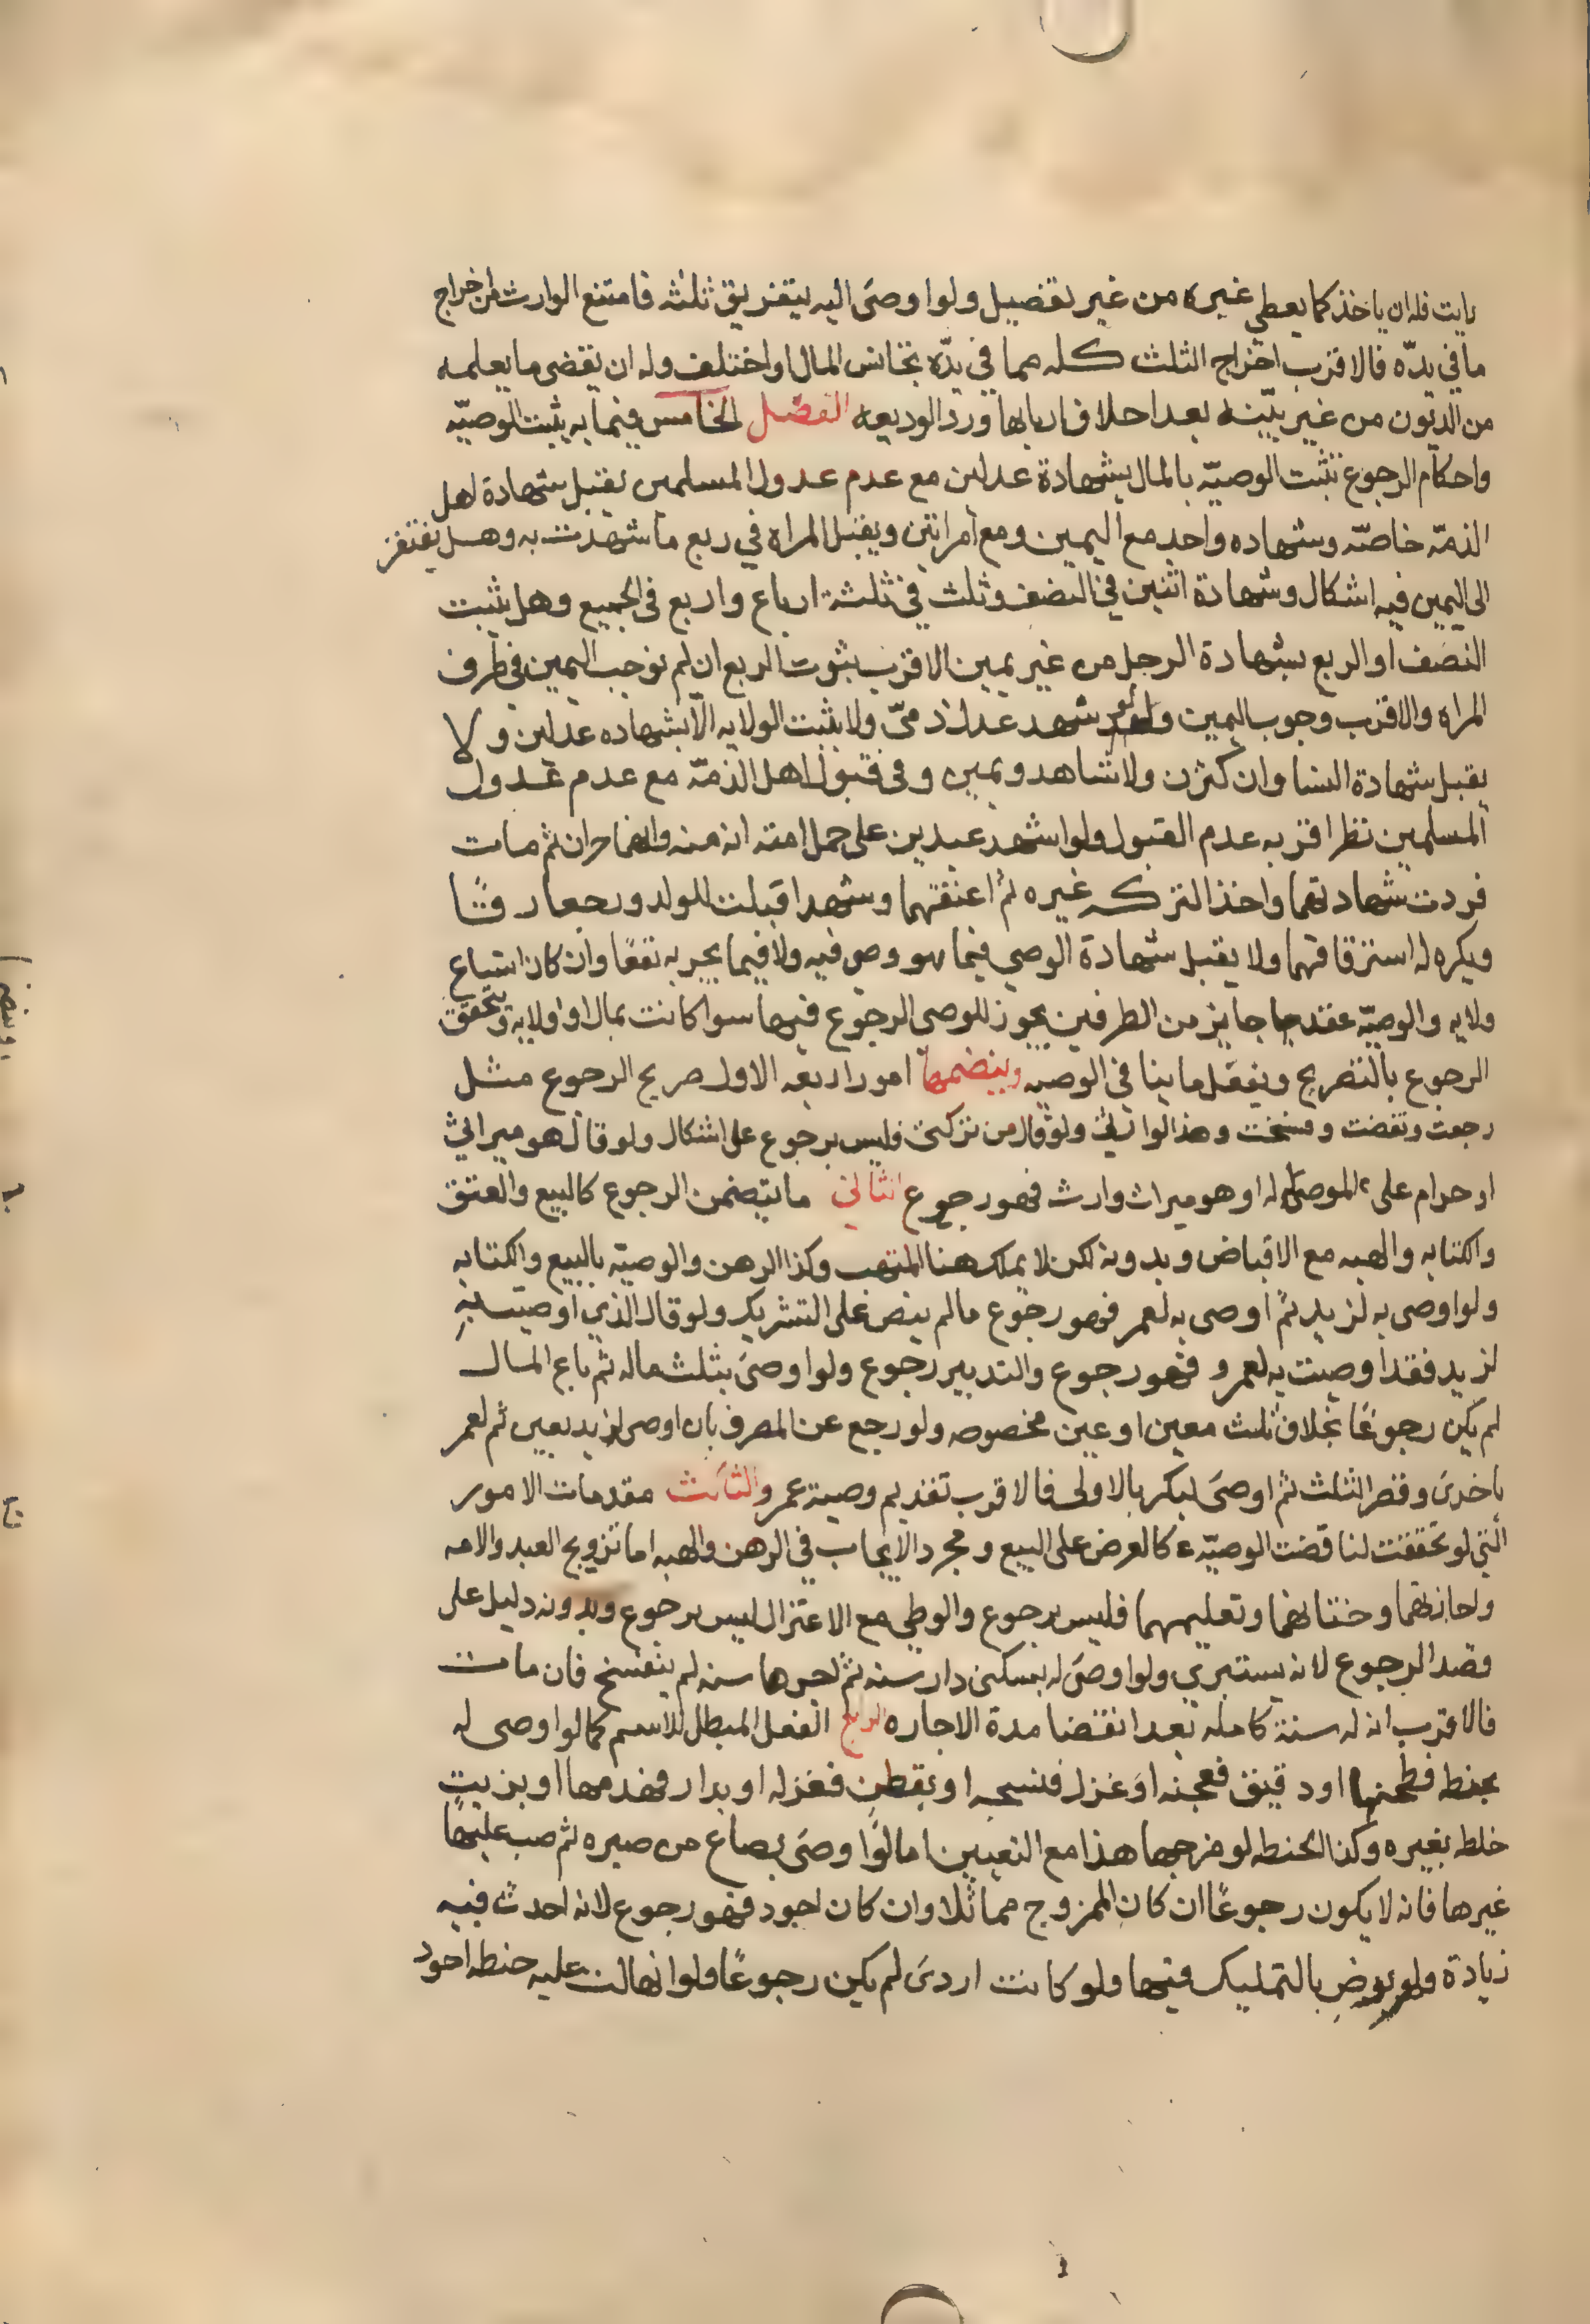 رايت فله ان ياخذ كما يعطي غيره من غير تفضيل ولو اوصى اليه بتفريق ثلثه فامتنع الوارث من اخراج
ما في يده فالاقرب اخراج الثلث كله مما في يده تجانس المال او اختلف وله ان يقضي ما يعلمه
من الديون من غير بينة بعد احلاف اربابها ورد الوديعه الفصل الخامس فيما به يثبت الوصيّه
واحكام الرجوع تثبت الوصيّه بالمال بشهادة عدلين مع عدم عدول المسلمين يقبل شهادة اهل
الذمّه خاصّه وشهاده واحد مع اليمين ومع امراتين ويقبل المراه في ربع ما شهدت به وهل يفتقر
الى اليمين فيه اشكال وشهادة اثنين في النصف وثلث في ثلثة ارباع واربع في الجميع وهل يثبت
النصف او الربع بشهادة الرجل من غير يمين الاقرب ثبوت الربع ان لم نوجب اليمين في طرف
المراه والاقرب وجوب اليمين ولو شهد عدل ذمىّ ولا يثبت الولايه الّا بشهاده عدلين ولا
يقبل شهادة النسا وان كثرن ولا شاهد ويمين وفي قبول اهل الذمّه مع عدم عدول
المسلمين نظر اقربه عدم القبول ولو اشهد عبدين على حمل امته انه منه وانهما حران ثم مات
فردت شهادتهما واخذ التركه غيره ثم اعتقهما وشهدا قبلت للولد ورجعا رقّا
ويكره له استرقاقهما ولا يقبل شهادة الوصي فيما هو وصي فيه ولا فيما يجر به نفعًا وان كان اتساع
ولايه والوصيّه عقد جايز من الطرفين يجوز للموصى الرجوع فيها سوا كانت بمال او ولايه ويتحقق
الرجوع بالتصريح وبفعل ما ينافي الوصيه وينضمها امور اربعه الاول صريح الرجوع مثل
رجعت ونقضت وفسخت وهذا لوارثي ولو قال من تركتى فليس برجوع على اشكال ولو قال هو ميراثي
او حرام على الموصى له او هو ميراث وارث فهو رجوع الثاني ما يتضمن الرجوع كالبيع والعتق
والكتابه والهبه مع الاقباض وبدونه لكن لا يملك هنا المتهب وكذا الرهن والوصيّه بالبيع والكتابه
ولو اوصى به لزيد ثم اوصى به لعمر فهو رجوع ما لم ينص على التشريك ولو قال الذي اوصيت به
لزيد فقد اوصيت به لعمرو فهو رجوع والتدبير رجوع ولو اوصى بثلث ماله ثم باع المال
لم يكن رجوعًا بخلاف ثلث معين او عين مخصوصه ولو رجع عن المصرف بان اوصى لزيد بعين ثم لعمر
باخرى وقصر الثلث ثم اوصى لبكر بالاولى فالاقرب تقديم وصية عمر والثالث مقدمات الامور
التي لو تحققت لناقضت الوصيّه كالعرض على البيع ومجرد الايجاب في الرهن والهبه اما تزويج العبد والامه
واجارتهما وختانهما وتعليمهما فليس برجوع والوطي مع الاعتزال ليس برجوع وبدونه دليل على
قصد الرجوع لانه يستبري ولو اوصى له بسكنى دار سنه ثم اجرها سنه لم ينفسخ فان مات
فالاقرب ان له سنة كامله بعد انقضا مدة الاجاره الرابع الفعل المبطل للاسم كما لو اوصى له
بحنطه فطحنها او دقيق فعجنه او غزل فنسجه او بقطن فغزله او بدار فهدمها او بزيت
خلطه بغيره وكذا الحنطه لو مزجها هذا مع التعيين اما لو اوصى بصاع من صبره ثم صب عليها
غيرها فانه لا يكون رجوعًا ان كان الممزوج مماثلا وان كان اجود فهو رجوع لانه احدث فيه
زيادة ولم يرض بالتمليك فيها ولو كانت اردى لم يكن رجوعًا ولو انهالت عليه حنطه اجود